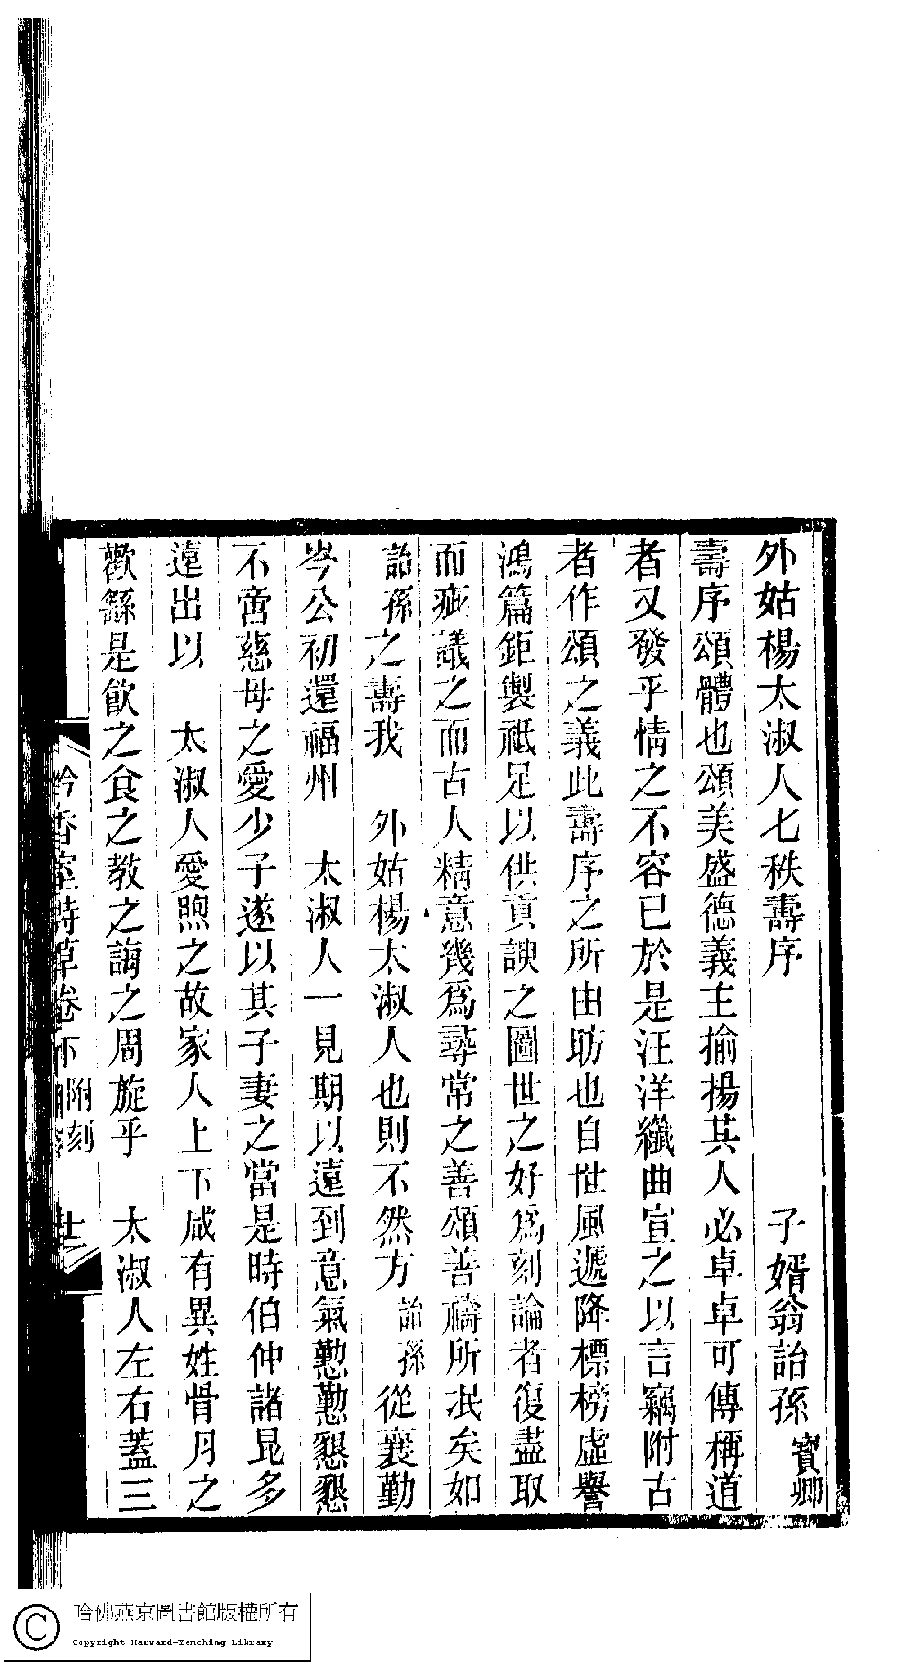 外姑楊太淑人七秩壽序　子婿翁詒孫寶卿
壽序頌體也頌美盛德義主揄揚其人必卓卓可傳稱道
者又發乎情之不容已於是汪洋纖曲宣之以言竊附古
者作頌之義此壽序之所由昉也自世風遞降標榜虛譽
鴻篇鉅製祗足以供貢諛之圖世之好爲刻論者復盡取
而疵議之而古人精意幾爲尋常之善頌善禱所泯矣如
詒孫之壽我　外姑楊太淑人也則不然方　詒孫從襄勤
岑公初還福州　太淑人一見期以遠到意氣懃懃懇懇
不啻慈母之愛少子遂以其子妻之當是時伯仲諸昆多
遠出以　太淑人愛煦之故家人上下咸有異姓骨月之
歡繇是飮之食之教之誨之周旋乎　太淑人左右蓋三
吟香室詩草卷下附刻　廿
哈佛燕京圖書館版權所有
Copyright Harvard-Yenching Library